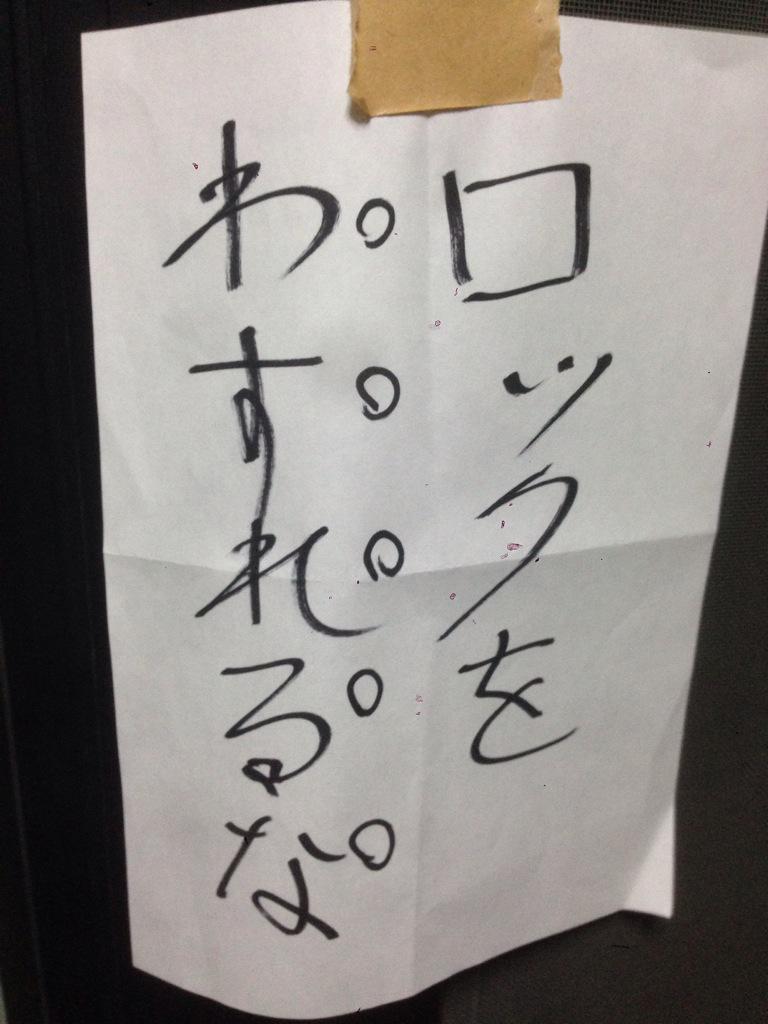 ロックを
わすれるな